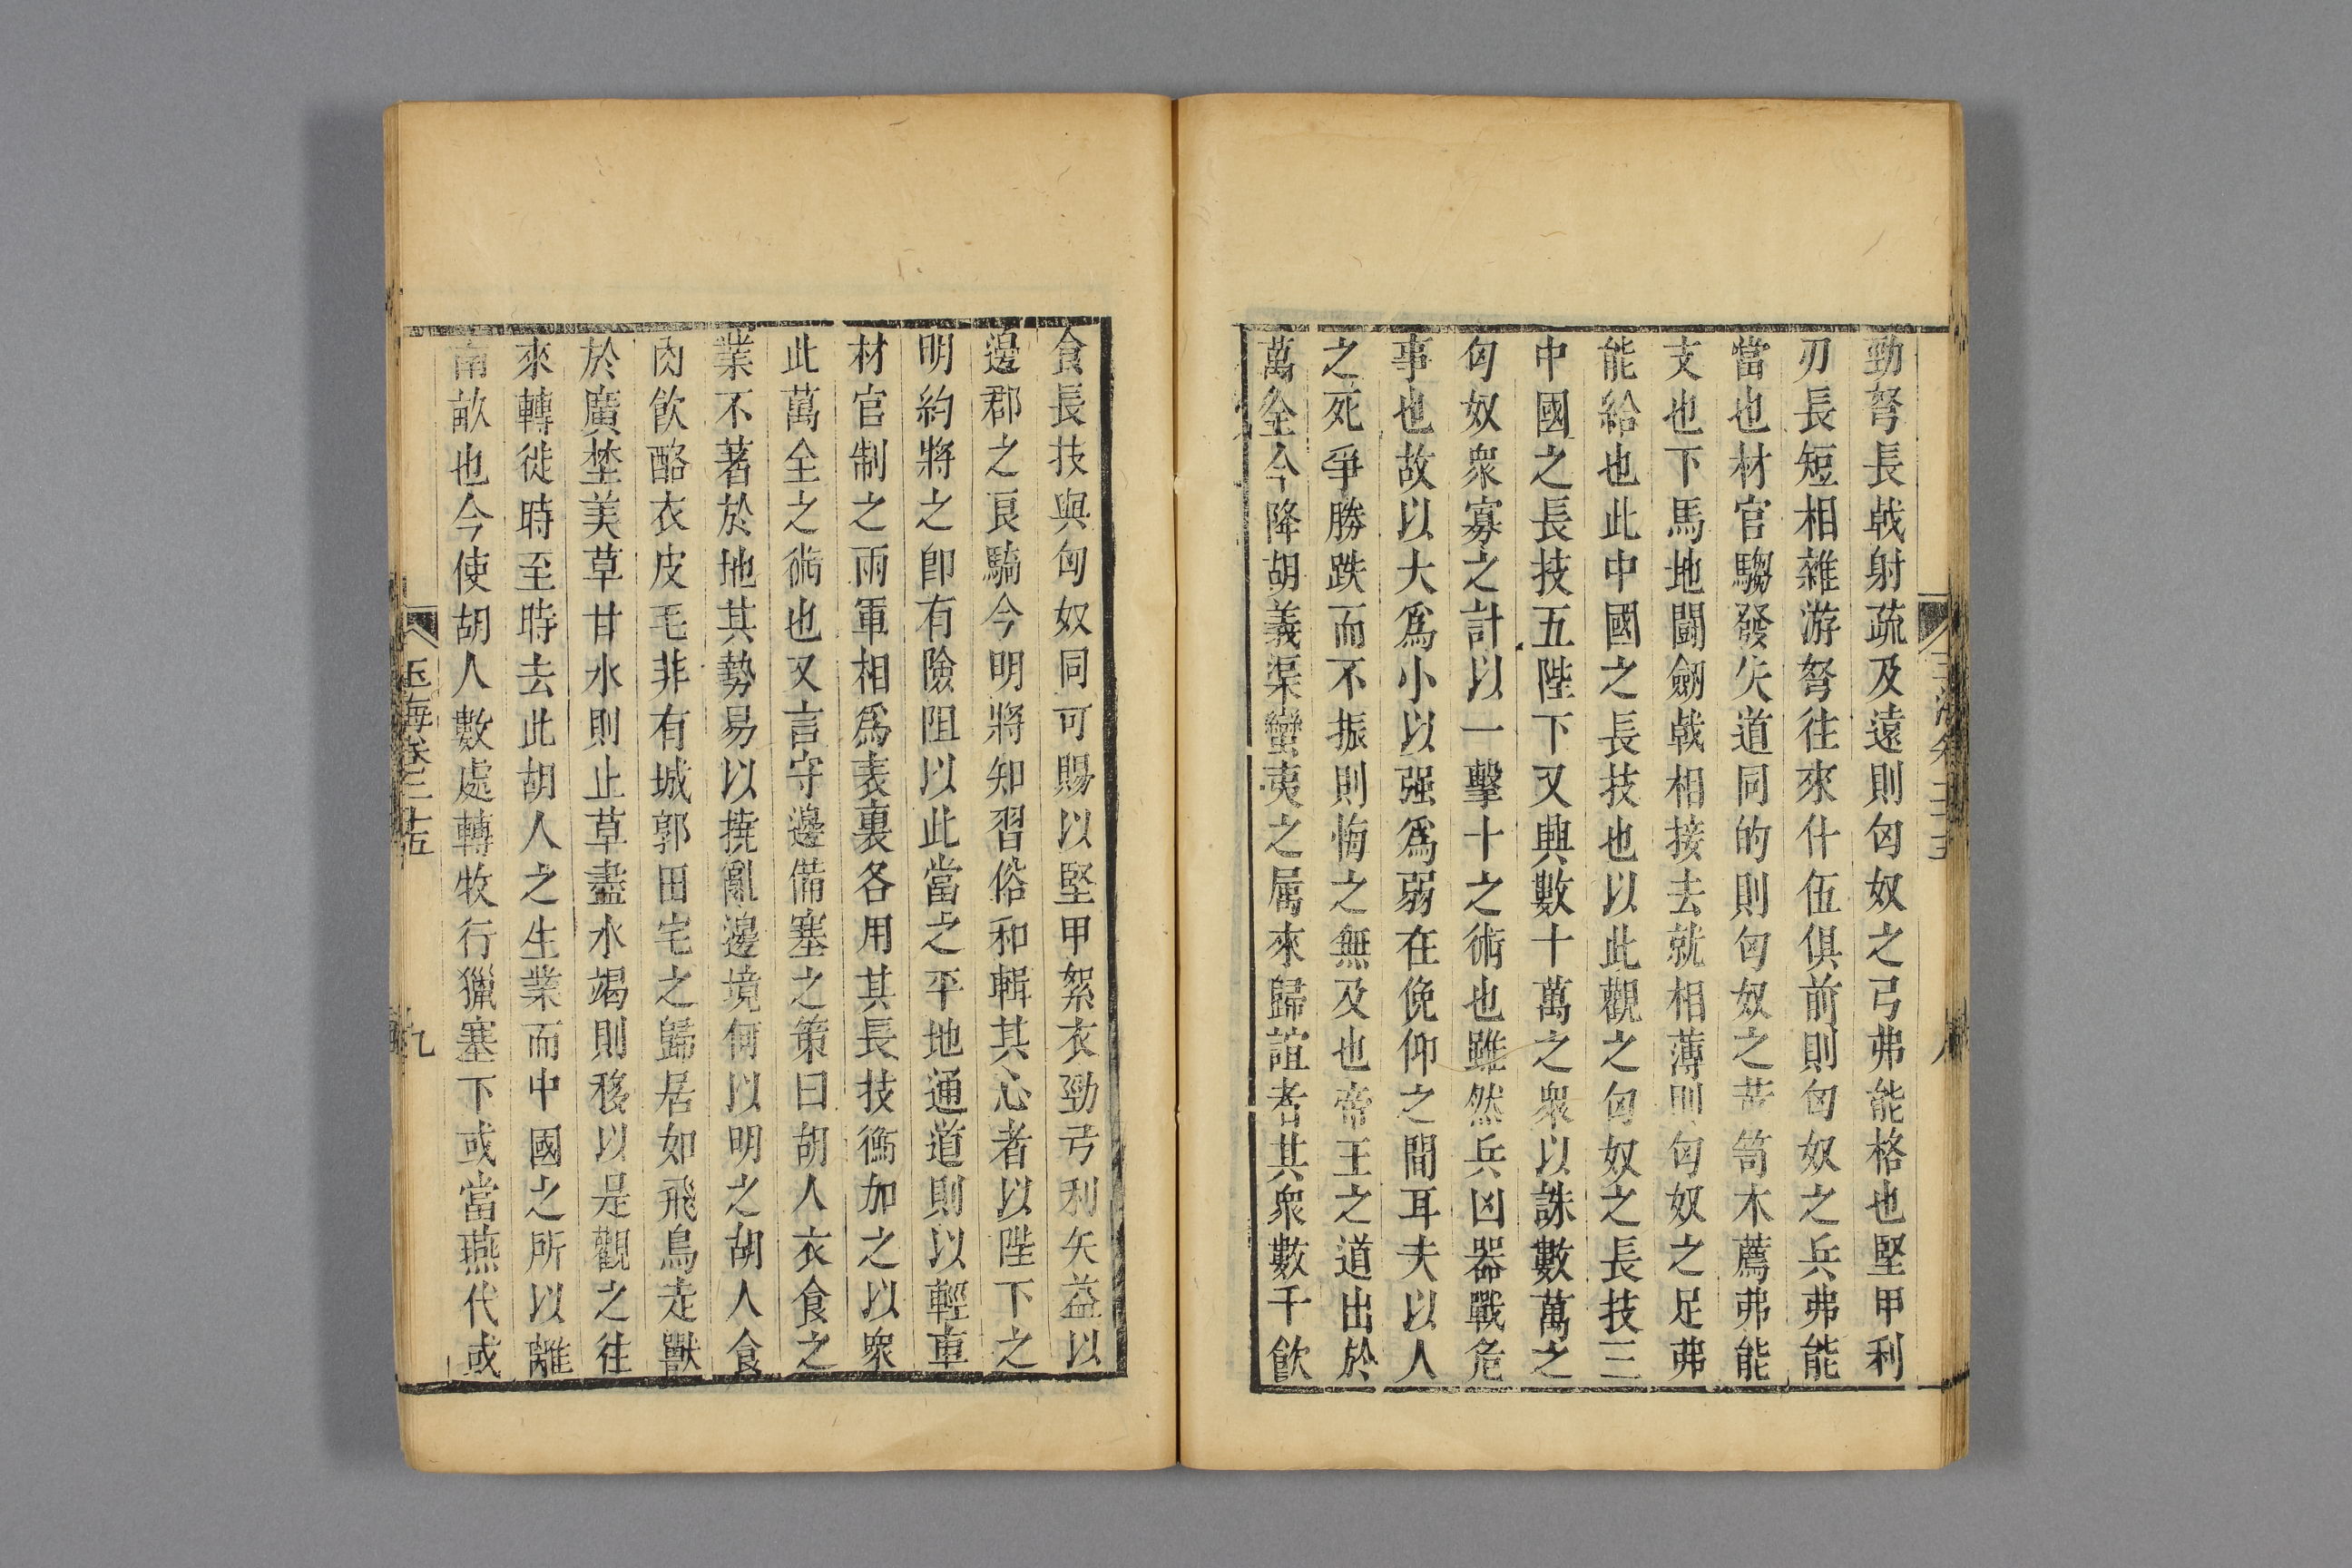 勁弩長戟射疏及遠則匈奴之弓弗能格也堅甲利
刃長短相雜游弩往來什伍俱前則匈奴之兵弗能
當也材官騶發矢道同的則匈奴之革笥木薦弗能
支也下馬地鬭劒戟相接去就相薄則匈奴之足弗
能給也此中國之長技也以此觀之匈奴之長技三
中國之長技五陛下又興數十萬之衆以誅數萬之
匈奴衆寡之計以一擊十之術也雖然兵凶器戰危
事也故以大爲小以强爲弱在俛仰之間耳夫以人
之死爭勝跌而不振則悔之無及也帝王之道出於
萬全今降胡義渠蠻夷之屬來歸誼者其衆數千飲
食長技與匈奴同可賜以堅甲絮衣勁弓利矢益以
邊郡之良騎今明將知習俗和輯其心者以陛下之
明約將之卽有險阻以此當之平地通道則以輕車
材官制之兩軍相爲表裏各用其長技衡加之以衆
此萬全之術也又言守邊備塞之策曰胡人衣食之
業不著於地其勢易以擾亂邊境何以明之胡人食
肉飲酪衣皮毛非有城郭田宅之歸居如飛鳥走獸
於廣埜美草甘水則止草盡水竭則移以是觀之往
來轉徙時至時去此胡人之生業而中國之所以離
南畝也今使胡人數處轉牧行獵塞下或當燕代或
玉海卷三十五
九